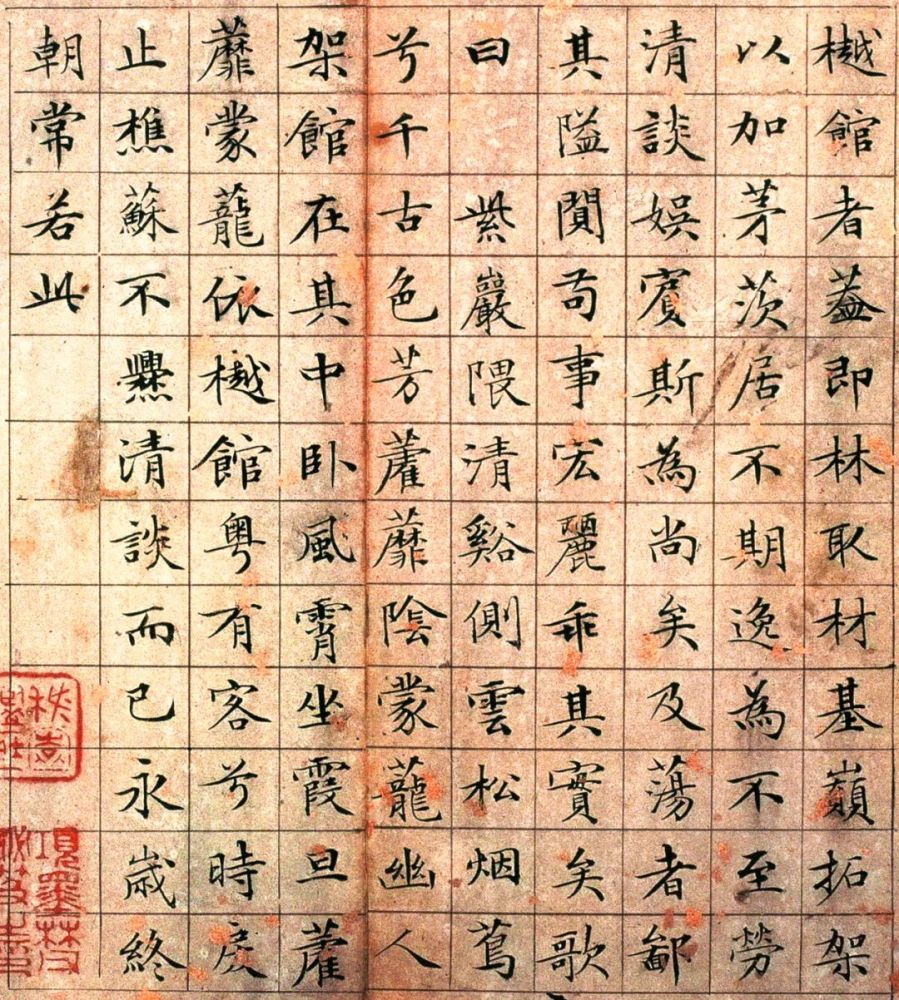 樾館者葢即林取材基巔拓架
以加茅茨居不期逸為不至勞
清談娛賓斯為尚矣及蕩者鄙
其隘闃苟事宏麗乖其實矣歌
曰紫巖隈清谿側雲松烟蔦
兮千古色芳藿蘼陰蒙蘢幽人
架館在其中卧風霄坐霞旦藿
蘼蒙蘢依樾館粵有客兮時戾
止樵蘇不爨清談而已永歲終
朝常若此